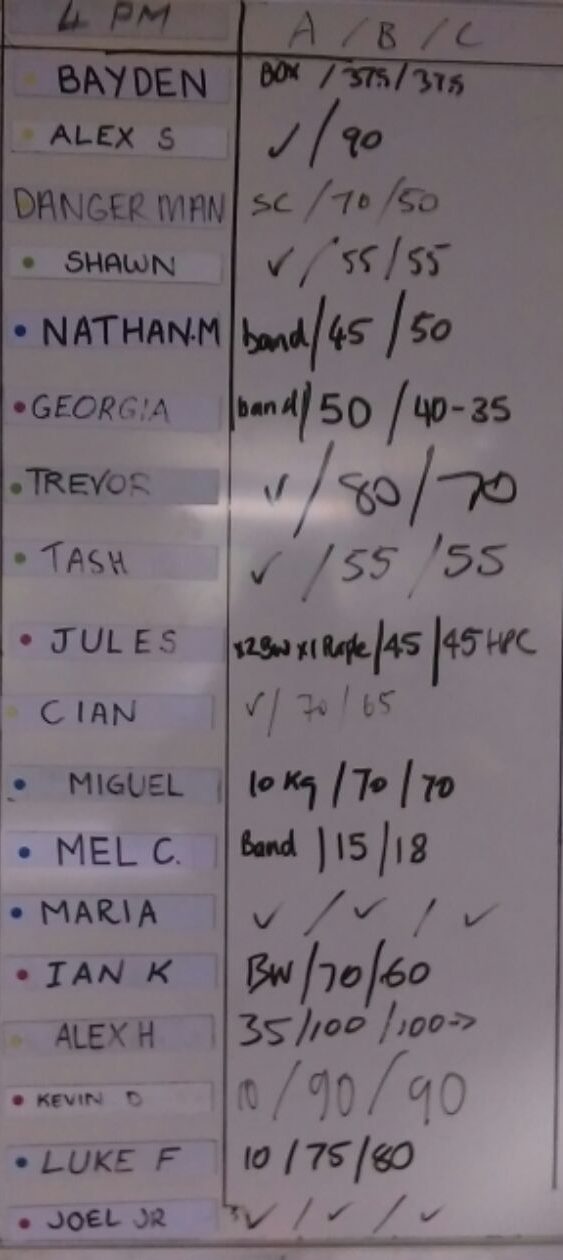 4 PM A / B / C
BAYDEN BOX / 37.5 / 37.5
ALEX S ✓ / 90
DANGER MAN SC / 70 / 50
SHAWN ✓ / 55 / 55
NATHAN.M band / 45 / 50
GEORGIA band / 50 / 40-35
TREVOR ✓ / 80 / 70
TASH ✓ / 55 / 55
JULES x2BW x1 Rope / 45 / 45 HPC
CIAN ✓ / 70 / 65
MIGUEL 10 Kg / 70 / 70
MEL C. Band / 15 / 18
MARIA ✓ / ✓ / ✓
IAN K BW / 70 / 60
ALEX H 35 / 100 / 100->
KEVIN D 10 / 90 / 90
LUKE F 10 / 75 / 80
JOEL JR ✓ / ✓ / ✓